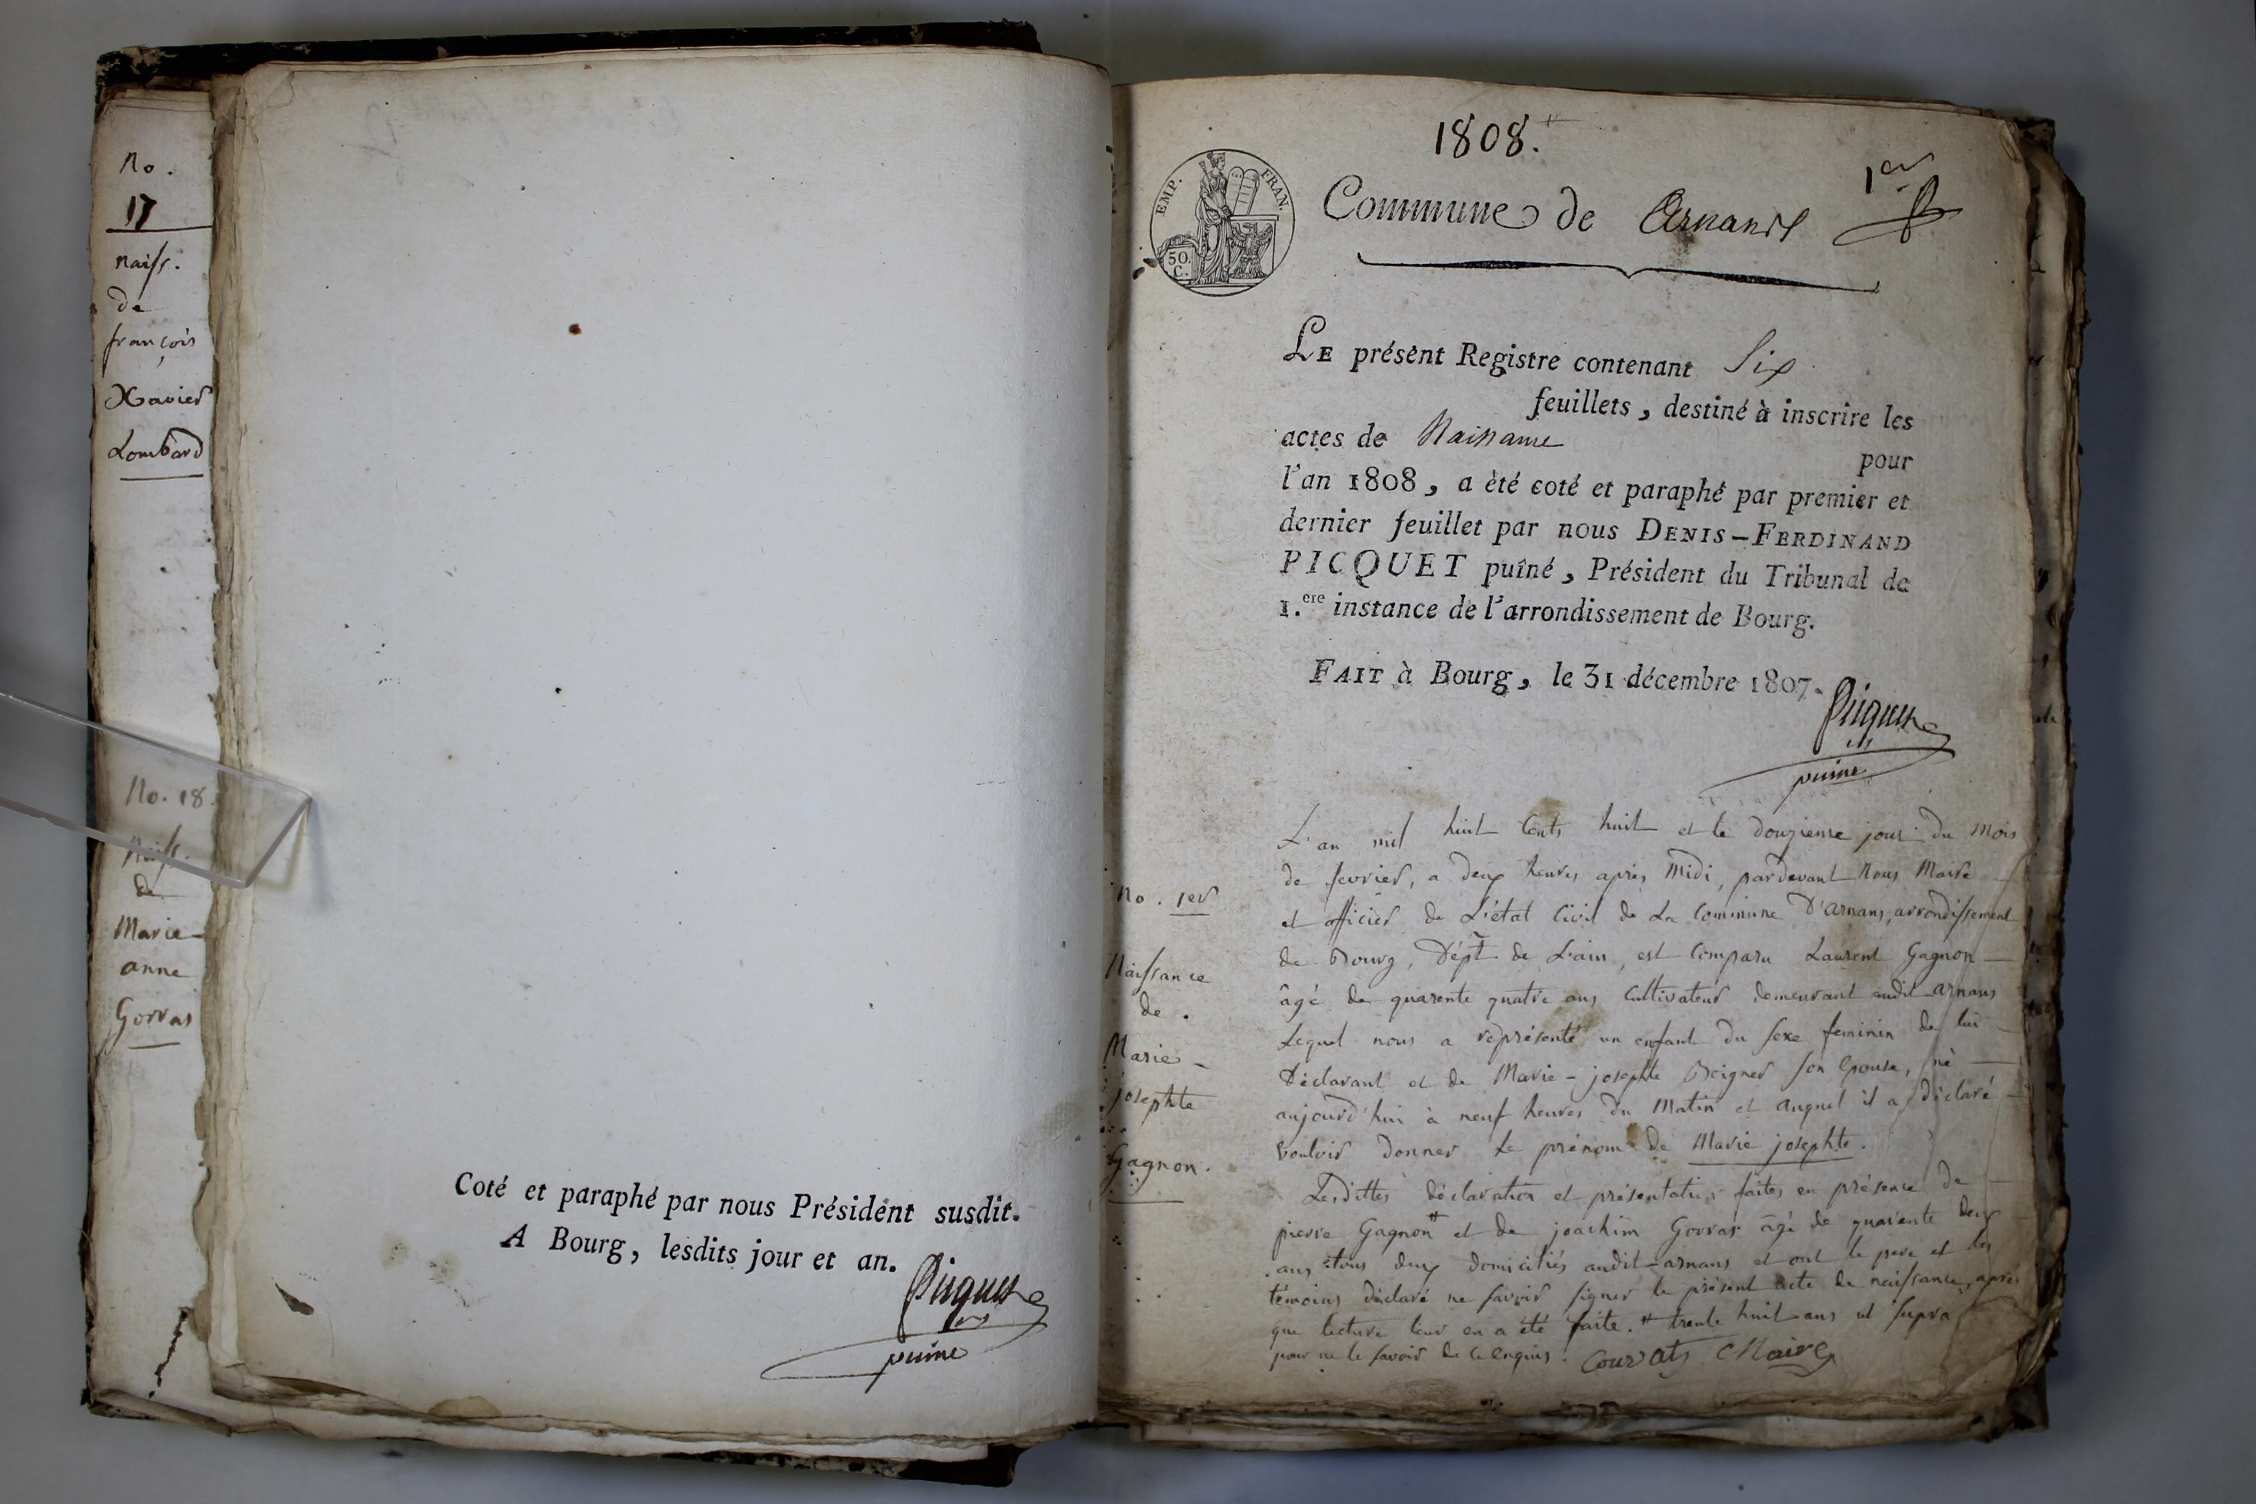 No.
17
naiss.
de
françois
Xavier
Lombard
No. 18.
Naiss.
de
Marie-
anne
Gorras
Coté et paraphé par nous Président susdit.
A Bourg, lesdits jour et an.
Picquet
puiné
1808.
1er
EMP. FRAN.
50.
C.
Commune de Arnans
LE présent Registre contenant Six
feuillets, destiné à inscrire les
actes de Naissance
pour
l'an 1808, a été coté et paraphé par premier et
dernier feuillet par nous DENIS-FERDINAND
PICQUET puîné, Président du Tribunal de
1.ere instance de l'arrondissement de Bourg.
FAIT à Bourg, le 31 décembre 1807.
Picquet
puiné
No. 1er
Naissance
de.
Marie-
josephte
Gagnon.
L'an mil huit Cents huit et le douzieme jour du Mois
de fevrier, a deux heures après Midi, pardevant Nous Maire
et officier de L'état Civil de La Commune D'arnans, arrondissement
de Bourg, Dépt. de L'ain, est Comparu Laurent Gagnon
âgé de quarente quatre ans Cultivateur demeurant audit arnans
Lequel nous a représenté un enfant du Sexe feminin de lui
Déclarant et de Marie-josephte Boigner son Epouse, né
aujourd'hui à neuf heures du Matin et auquel il a déclaré
vouloir donner Le prénom de Marie josephte.
Lesdittes déclaration et présentation faites en présence de
pierre Gagnon # et de joachim Gorras âgé de quarente deux
ans tous deux domiciliés audit-arnans et ont le pere et les
témoins déclaré ne savoir signer le présent acte de naissance, après
que lecture leur en a été faite. # trente huit ans ut supra
pour ne le savoir de ce enquis. Courvats Maire